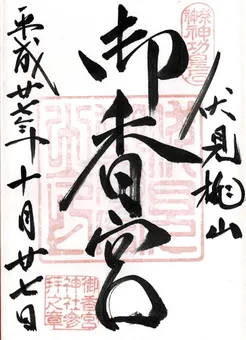 伏見桃山
御香宮
平成廿七年十月廿七日
祭神神功皇后
御香宮
神社参
拝之章